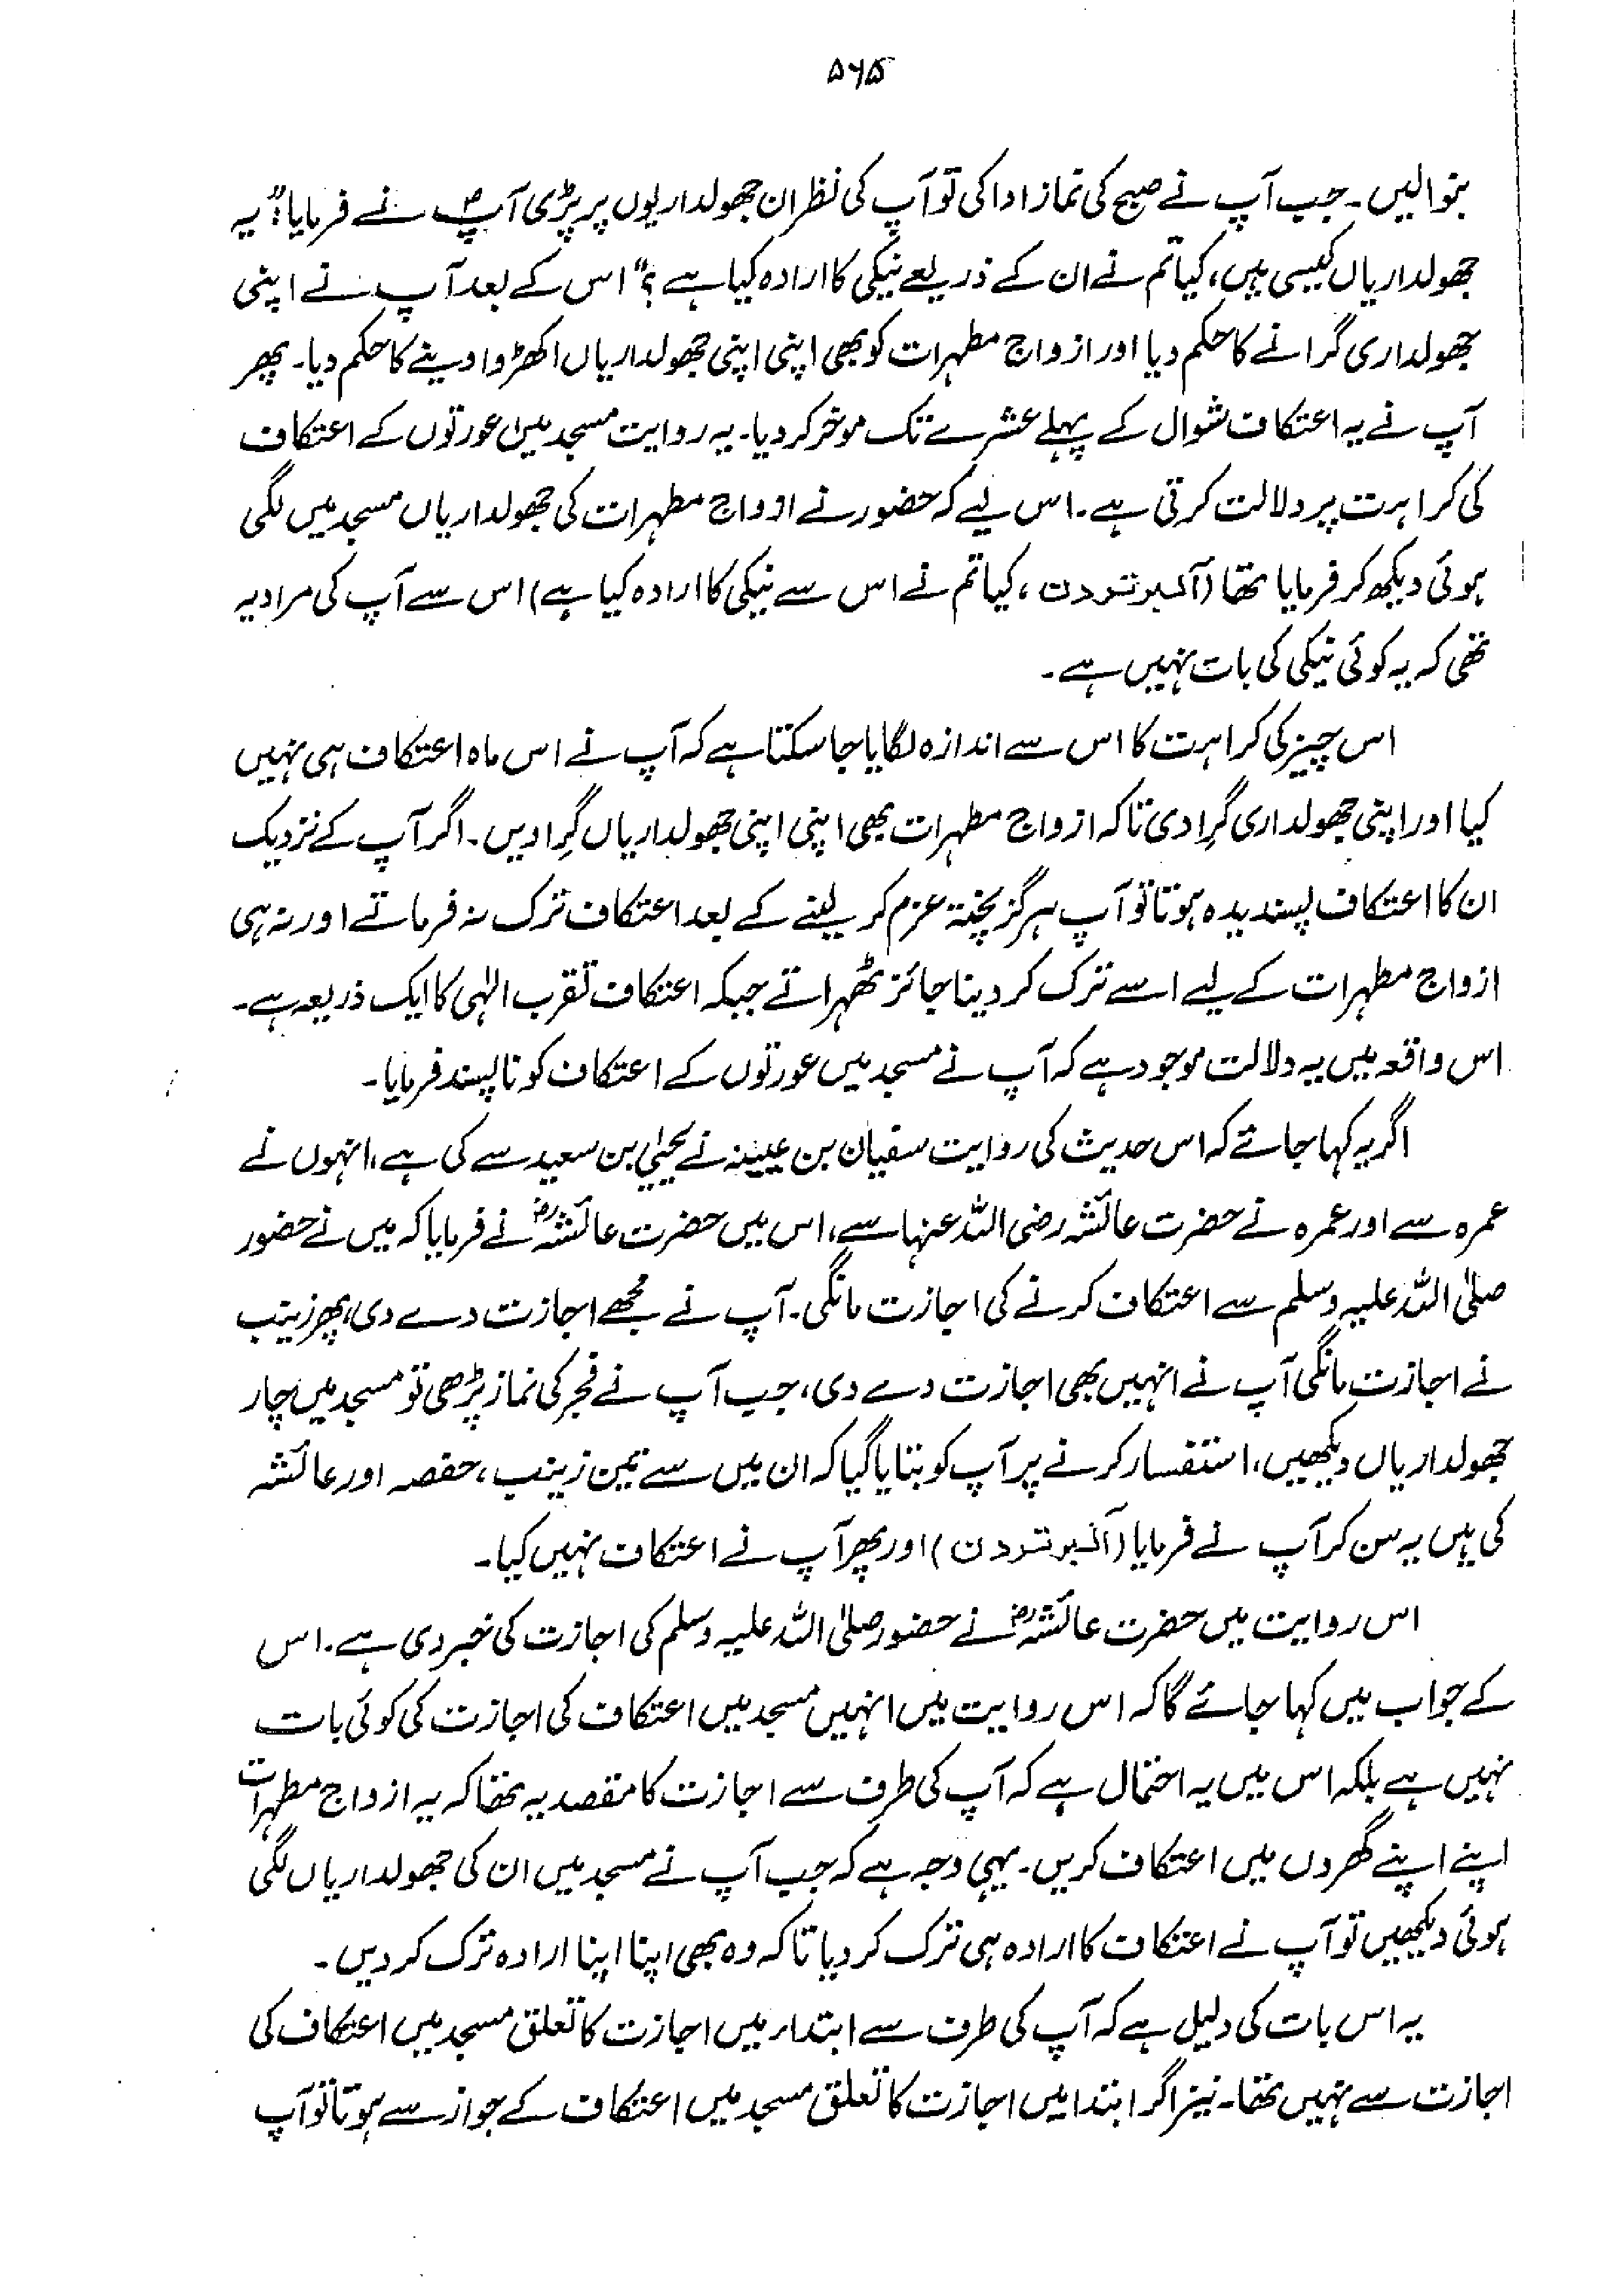 ۵۶۵
بنوالیں۔ جب آپ نے صبح کی نماز ادا کی تو آپ کی نظر ان جھولداریوں پر پڑی آپؐ نے فرمایا: "یہ
جھولداریاں کیسی ہیں، کیا تم نے ان کے ذریعے نیکی کا ارادہ کیا ہے؟" اس کے بعد آپ نے اپنی
جھولداری گرانے کا حکم دیا اور ازواج مطہرات کو بھی اپنی اپنی جھولداریاں اکھڑوا دینے کا حکم دیا۔ پھر
آپ نے یہ اعتکاف شوال کے پہلے عشرے تک موخر کردیا۔ یہ روایت مسجد میں عورتوں کے اعتکاف
کی کراہت پر دلالت کرتی ہے۔ اس لیے کہ حضور نے ازواج مطہرات کی جھولداریاں مسجد میں لگی
ہوئی دیکھ کر فرمایا تھا (آلبر تردن، کیا تم نے اس سے نیکی کا ارادہ کیا ہے) اس سے آپ کی مراد یہ
تھی کہ یہ کوئی نیکی کی بات نہیں ہے۔
اس چیز کی کراہت کا اس سے اندازہ لگایا جاسکتا ہے کہ آپ نے اس ماہ اعتکاف ہی نہیں
کیا اور اپنی جھولداری گِرا دی تاکہ ازواج مطہرات بھی اپنی اپنی جھولداریاں گِرا دیں۔ اگر آپ کے نزدیک
ان کا اعتکاف پسندیدہ ہوتا تو آپ ہرگز پختہ عزم کر لینے کے بعد اعتکاف ترک نہ فرماتے اور نہ ہی
ازواج مطہرات کے لیے اسے ترک کر دینا جائز ٹھہراتے جبکہ اعتکاف تقرب الٰہی کا ایک ذریعہ ہے۔
اس واقعہ میں یہ دلالت موجود ہے کہ آپ نے مسجد میں عورتوں کے اعتکاف کو ناپسند فرمایا۔
اگر یہ کہا جائے کہ اس حدیث کی روایت سفیان بن عیینہ نے یحییٰ بن سعید سے کی ہے، انہوں نے
عمرہ سے اور عمرہ نے حضرت عائشہ رضی اللہ عنہا سے، اس میں حضرت عائشہؓ نے فرمایا کہ میں نے حضور
صلی اللہ علیہ وسلم سے اعتکاف کرنے کی اجازت مانگی۔ آپ نے مجھے اجازت دے دی، پھر زینب
نے اجازت مانگی آپ نے انہیں بھی اجازت دے دی، جب آپ نے فجر کی نماز پڑھی تو مسجد میں چار
جھولداریاں دیکھیں، استفسار کرنے پر آپ کو بتایا گیا کہ ان میں سے تین زینب، حفصہ اور عائشہ
کی ہیں یہ سن کر آپ نے فرمایا (آلبر تردن) اور پھر آپ نے اعتکاف نہیں کیا۔
اس روایت میں حضرت عائشہؓ نے حضور صلی اللہ علیہ وسلم کی اجازت کی خبر دی ہے۔ اس
کے جواب میں کہا جائے گا کہ اس روایت میں انہیں مسجد میں اعتکاف کی اجازت کی کوئی بات
نہیں ہے بلکہ اس میں یہ احتمال ہے کہ آپ کی طرف سے اجازت کا مقصد یہ تھا کہ یہ ازواج مطہرات
اپنے اپنے گھروں میں اعتکاف کریں۔ یہی وجہ ہے کہ جب آپ نے مسجد میں ان کی جھولداریاں لگی
ہوئی دیکھیں تو آپ نے اعتکاف کا ارادہ ہی ترک کر دیا تاکہ وہ بھی اپنا اپنا ارادہ ترک کر دیں۔
یہ اس بات کی دلیل ہے کہ آپ کی طرف سے ابتداء میں اجازت کا تعلق مسجد میں اعتکاف کی
اجازت سے نہیں تھا۔ نیز اگر ابتدا میں اجازت کا تعلق مسجد میں اعتکاف کے جواز سے ہوتا تو آپ